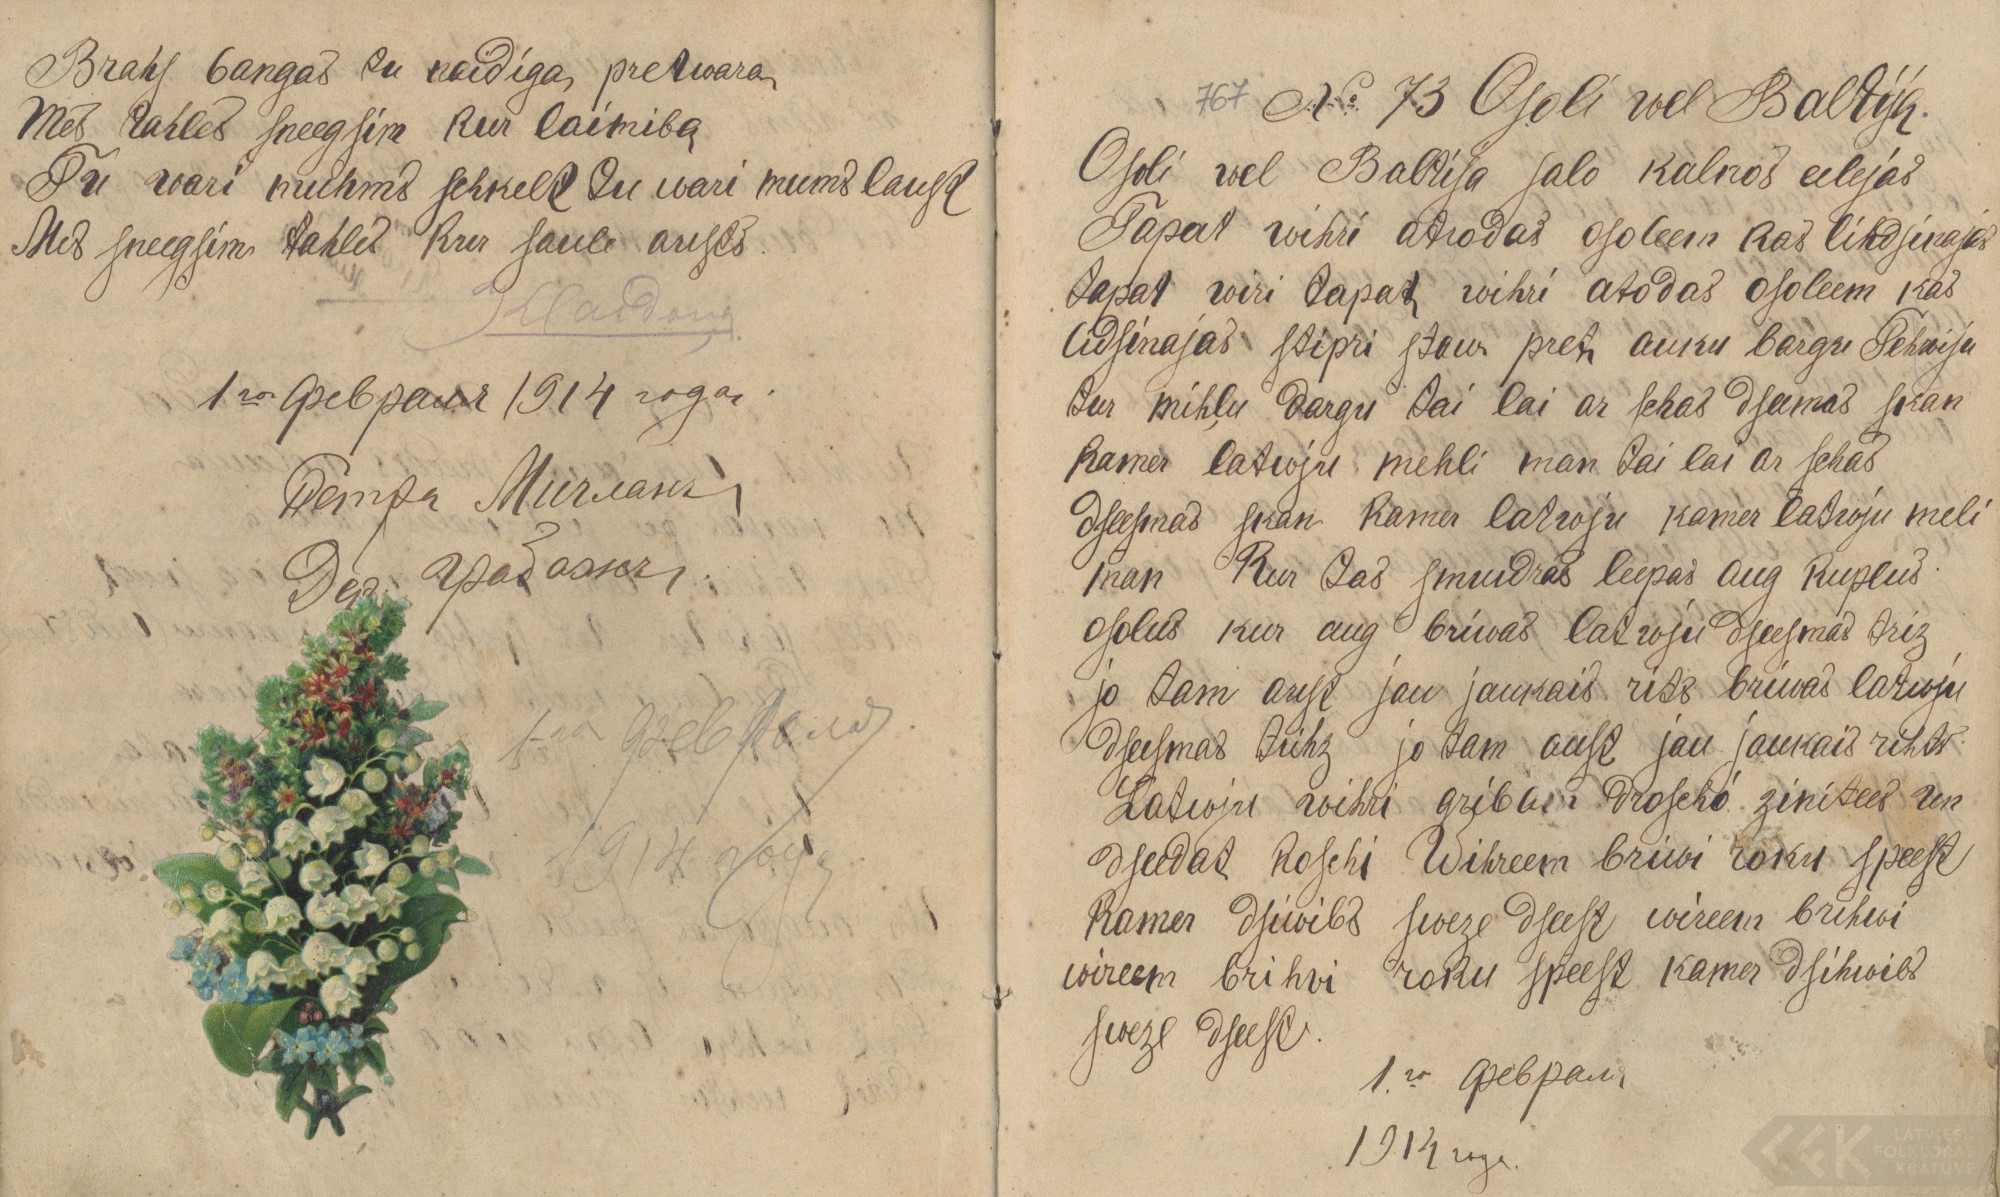 Brahs bangas tu naidiga pretwara
Mes tahles sneegsim kur laimiba
Tu wari muhms schkelt tu wari mums laust
Mes sneegsim tahles kur saule austs.
1 го Февраля 1914 года.
Петра
Дер.
1 го Февраля
1914 года
767 No. 73 Osoli wel Baltijā.
Osoli wel Baltija salo kalnos eelejas
Tapat wihri atrodas osoleem kas lihdsinajas
tapat wiri tapat wihri atodas osoleem kas
lidsinajas stipri staw pret auku bargu Tehwiju
tur mihļu dargu tai lai ar schas dseemas skan
kamer latwju mehli man tai lai ar schas
dseesmas skan kamer latwju kamer latwju meli
man Kur tas smuidras leepas aug kuplus
osolus kur aug briwas latwju dseesmas triz
jo tam aust jau jaukais rits briwas latwju
dseesmas trihz jo tam aust jau jaukais rihts.
Latwju wihri gribam droschi zinitees un
dseedat koschi Wihreem briwi roku speest
kamer dsiwibs sweze dseest wireem brihwi
wireem brihwi roku speest kamer dsihwibs
sweze dseest.
1. го Февраля
1914 года.
LATVIEŠU
FOLKLORAS
KRĀTUVE